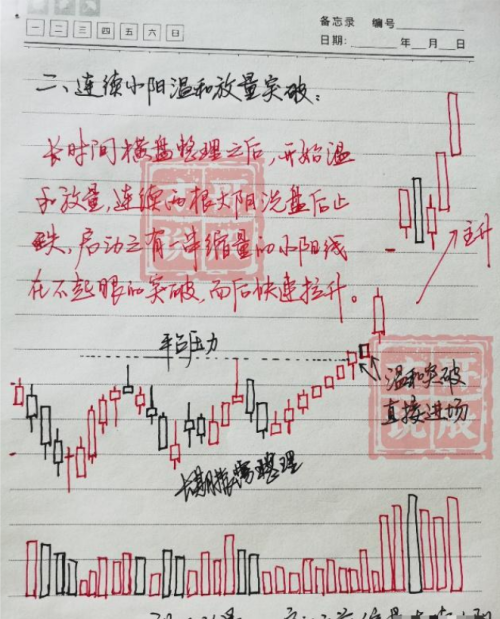 备忘录 编号
一 二 三 四 五 六 日
日期: 年 月 日
二、连续小阳温和放量突破：
长时间横盘整理之后，开始温
和放量，连续两根大阴洗盘后止
跌，启动之有一串缩量的小阳线
在不起眼的突破，而后快速拉升。
主升
平台压力
温和突破
直接进场
长期横盘整理